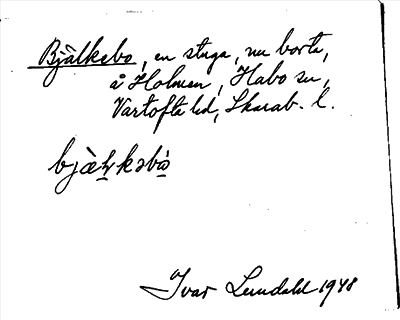 Bjälkebo, en stuga, nu borta,
å Holmen, Habo sn,
Vartofta hd, Skarab. l.
bjæ̀ḷkəbò
Ivar Lundahl 1948